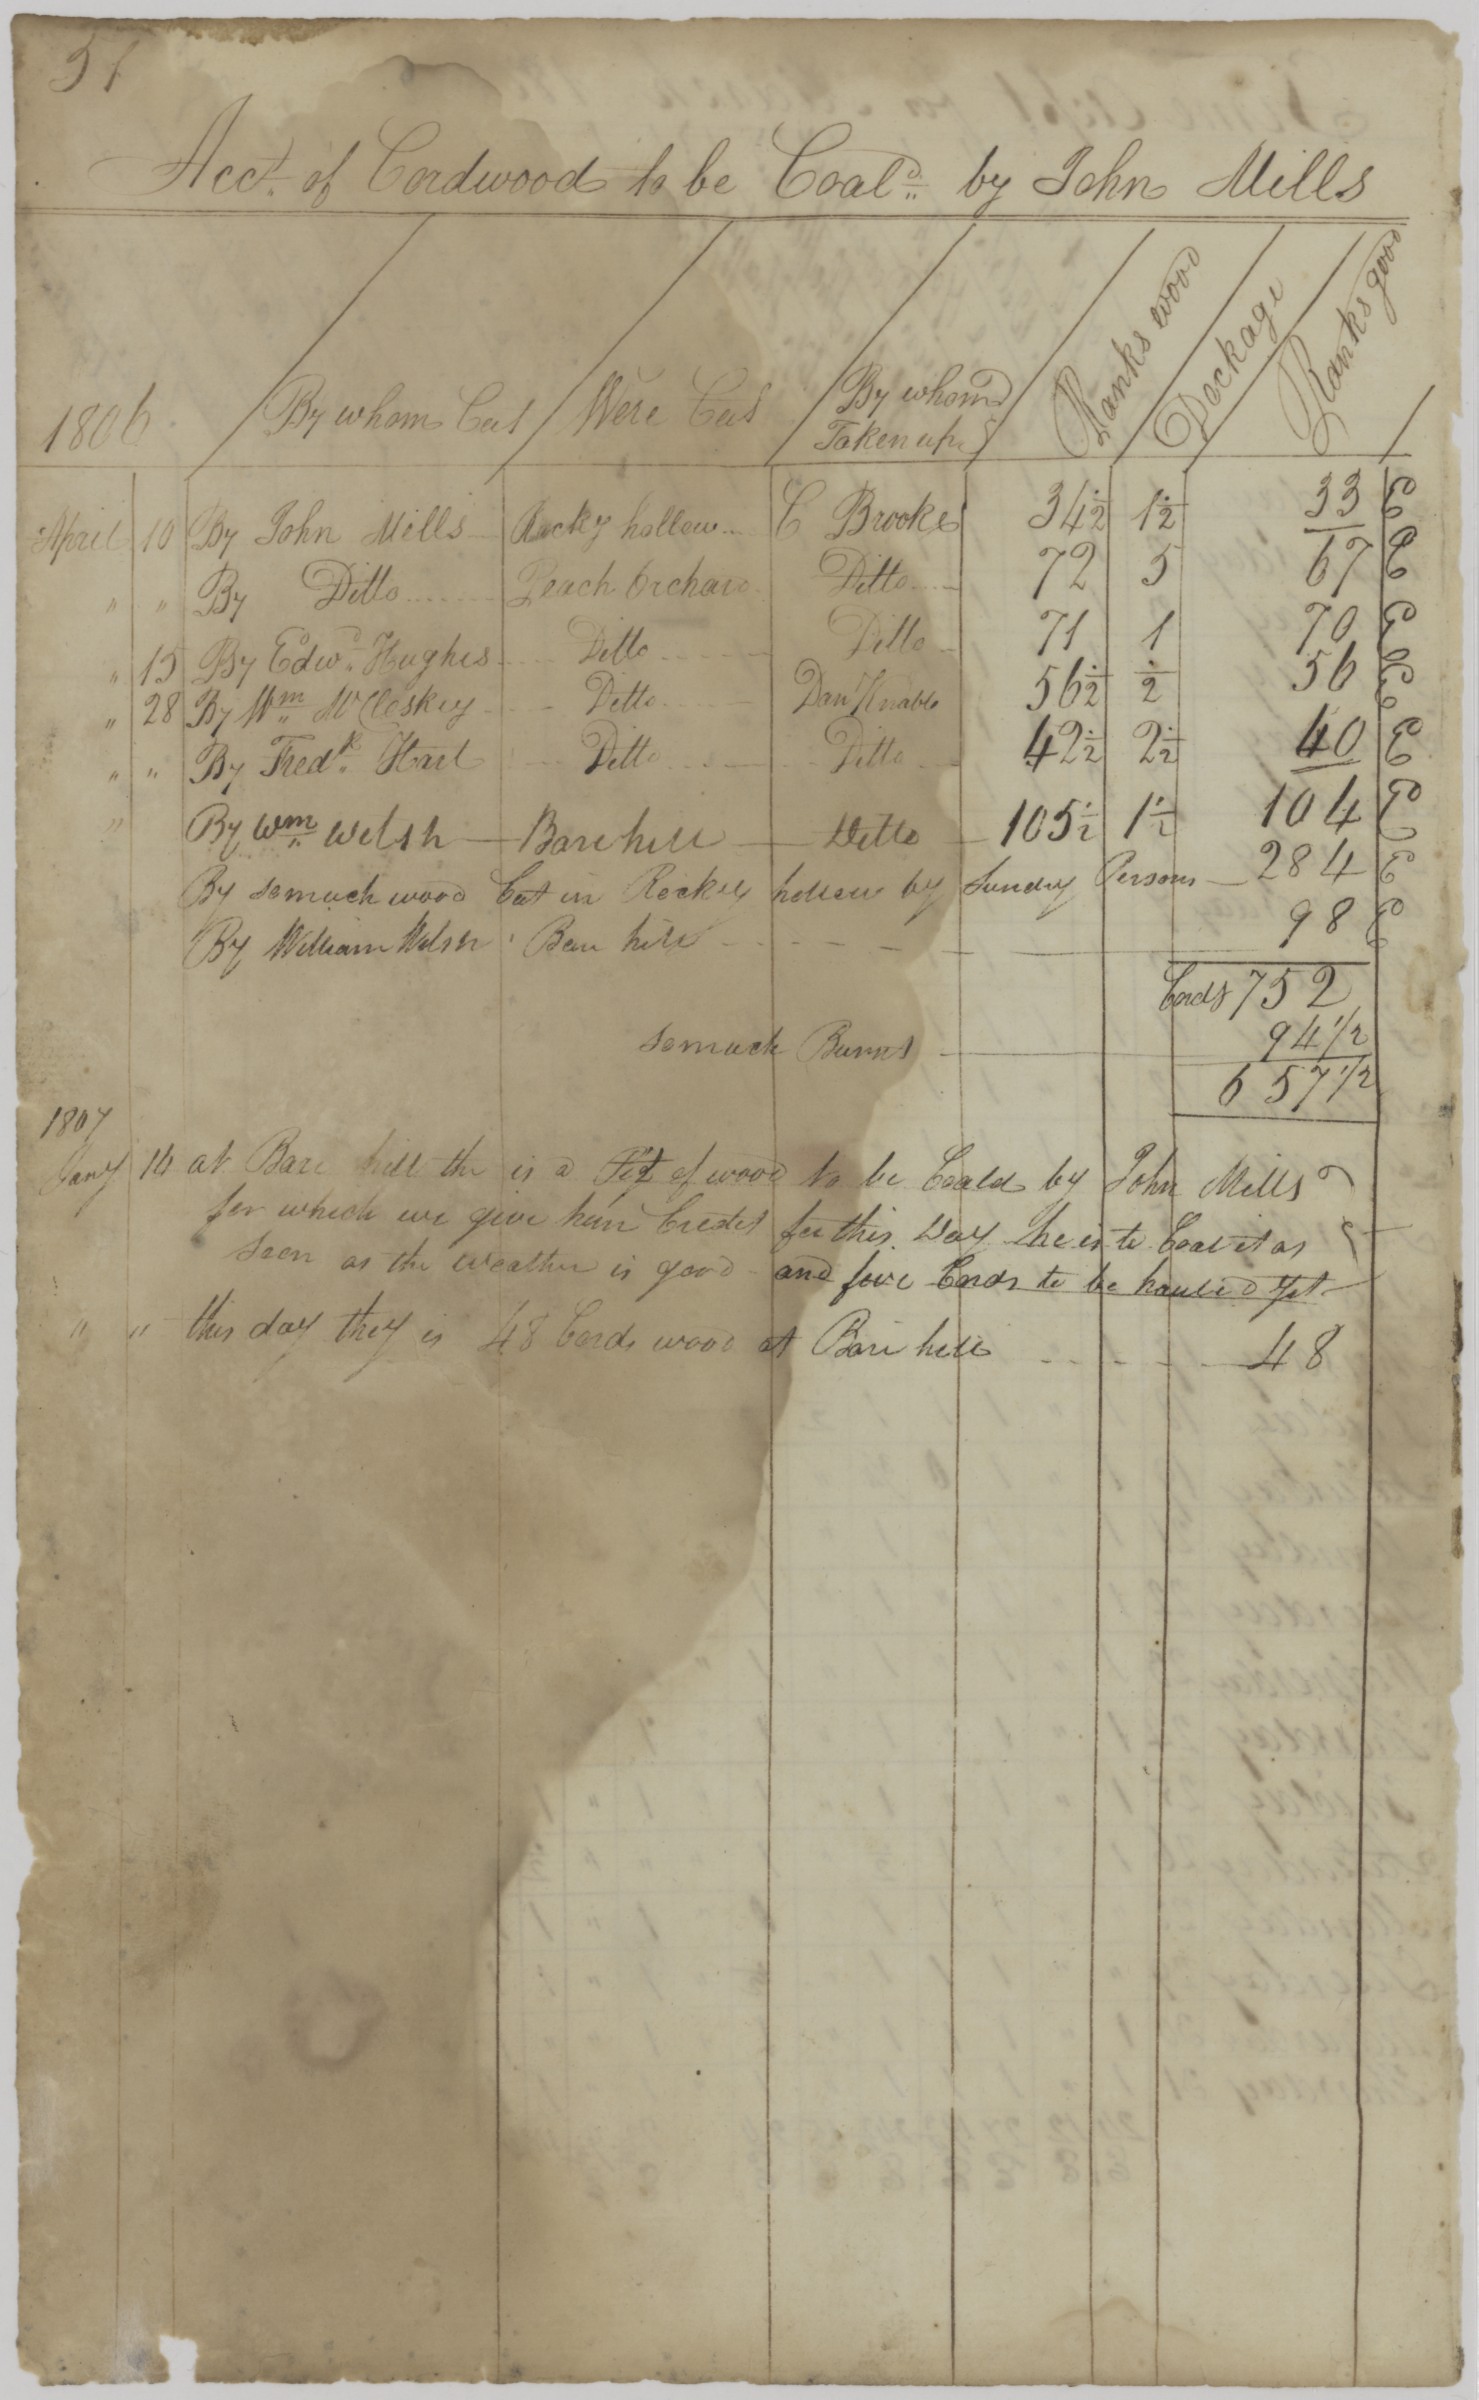 51
Acct. of Cordwood to be Coald. by John Mills
1806 By whom Cut Were Cut By whom Taken up Ranks wood Dockage Ranks good
April 10 By John Mills Rocky hollow C Brooke 34 1/2 1 1/2 33 E
" " By Ditto Peach Orchard Ditto 72 5 67 E
" 15 By Edwd. Hughes Ditto Ditto 71 1 70 E
" 28 By Wm. McCloskey Ditto Dan Knable 56 1/2 1/2 56 E
" " By Fredk. Hart Ditto Ditto 42 1/2 2 1/2 40 E
" By Wm. Welsh Bare hill Ditto 105 1/2 1 1/2 104 E
By somuch wood Cut in Rocky hollow by Sundry Persons 284 E
By William Welsh Bare hill 98 E
Cords 752
somuch Burnt 94 1/2
657 1/2
1807
Jany 10 at Bare hill the is a Pit of wood to be Coald by John Mills
for which we give him Credit for this Day he is to Coal it as
Soon as the weather is good and four Cords to be hauled yet
" " this day they is 48 Cords wood at Bare hill 48